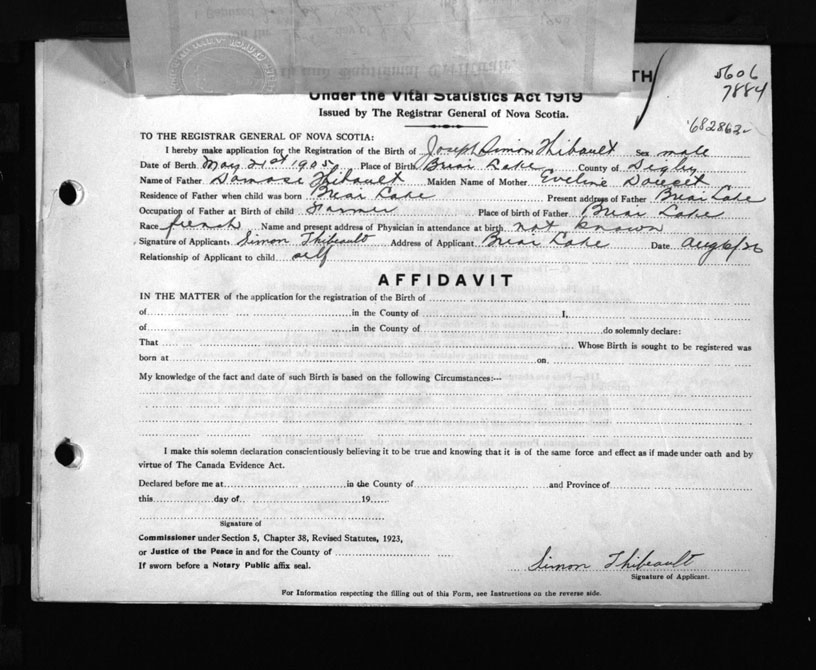 TH
5606
7884
Under the Vital Statistics Act 1919
Issued by The Registrar General of Nova Scotia.
682862
TO THE REGISTRAR GENERAL OF NOVA SCOTIA:
I hereby make application for the Registration of the Birth of Joseph Simon Thibault Sex male
Date of Berth May 21st 1905 Place of Birth Briar Lake County of Digby
Name of Father Damase Thibault Maiden Name of Mother Eveline Doucet
Residence of Father when child was born Briar Lake Present address of Father Briar Lake
Occupation of Father at Birth of child Farmer Place of birth of Father Briar Lake
Race french Name and present address of Physician in attendance at birth not known
Signature of Applicants Simon Thibeault Address of Applicant Briar Lake Date Aug 6/26
Relationship of Applicant to child self
AFFIDAVIT
IN THE MATTER of the application for the registration of the Birth of
of in the County of I,
of in the County of do solemnly declare:
That Whose Birth is sought to be registered was
born at on
My knowledge of the fact and date of such Birth is based on the following Circumstances:--
I make this solemn declaration conscientiously believing it to be true and knowing that it is of the same force and effect as if made under oath and by
virtue of The Canada Evidence Act.
Declared before me at in the County of and Province of
this day of 19
Signature of
Commissioner under Section 5, Chapter 38, Revised Statutes, 1923,
or Justice of the Peace in and for the County of
If sworn before a Notary Public affix seal.
Simon Thibeault
Signature of Applicant.
For Information respecting the filling out of this Form, see Instructions on the reverse side.